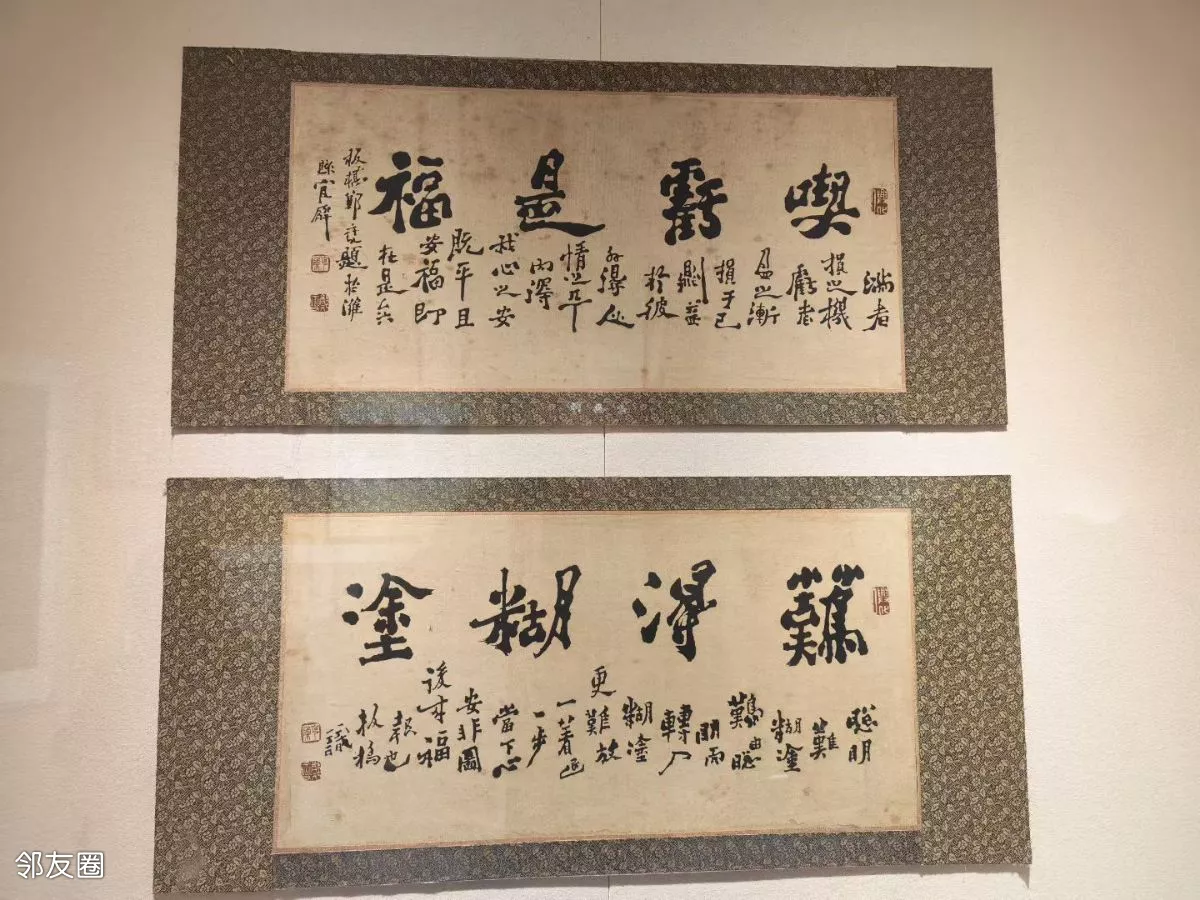 喫虧是福
滿者
損之機
虧者
盈之漸
損于己
則益
於彼
外得人
情之平
内得
我心之安
既平且
安福即
在是矣
板橋鄭燮題於濰
縣官廨
難得糊塗
聰明
難
糊塗
難由聰
明而
轉入
糊塗
更難放
一著退
一步
當下心
安非圖
後来福
報也
板橋
識
邻友圈